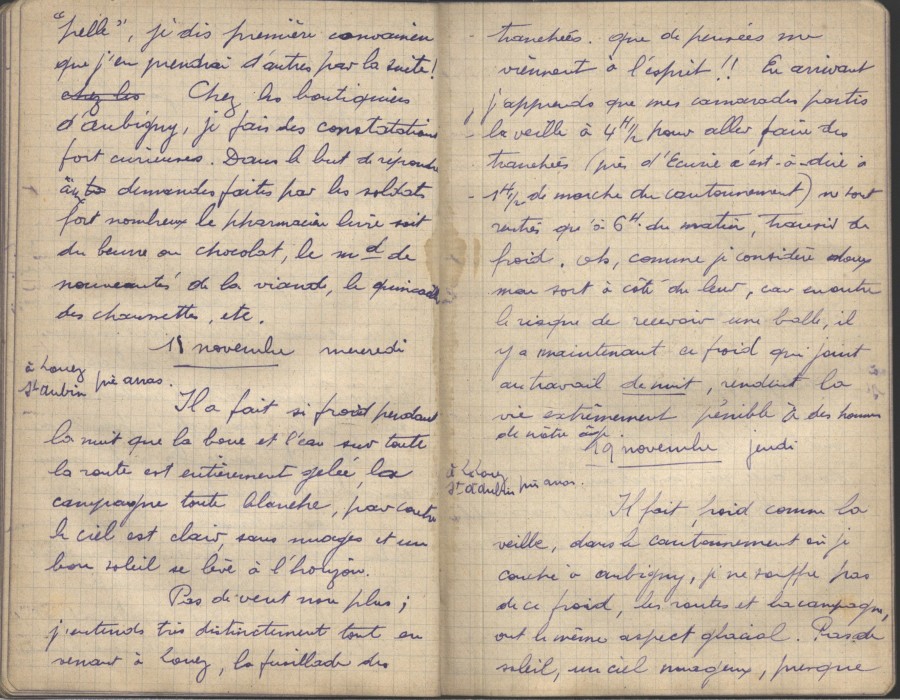 "pelle", je dis première convaincu
que j'en prendrai d'autres par la suite!
chez les Chez les boutiquiers
d'Aubigny, je fais des constatations
fort curieuses. Dans le but de répondre
aux demandes faites par les soldats
fort nombreux le pharmacien livre soit
du beurre ou chocolat, le md de
nouveautés de la viande, le quincailler
des chaussettes, etc.
18 novembre mercredi
à Louez
St Aubin près arras.
Il a fait si froid pendant
la nuit que la boue et l'eau sur toute
la route est entièrement gelée, la
campagne toute blanche, par contre
le ciel est clair, sans nuages et un
bon soleil se lève à l'horizon.
Pas de vent non plus ;
j'entends très distinctement tout en
venant à Louez, la fusillade des
tranchées. que de pensées me
viennent à l'esprit!! En arrivant
j'apprends que mes camarades partis
la veille à 4H1/2 pour aller faire des
tranchées (près d'Ecurie c'est-à-dire à
1H1/2 de marche du cantonnement) ne sont
rentrés qu'à 6H. du matin, transis de
froid. Oh, comme je considère doux
mon sort à côté du leur, car en outre
le risque de recevoir une balle, il
y a maintenant ce froid qui joint
au travail de nuit, rendent la
vie extrêmement pénible à des hommes
de nôtre âge
19 novembre jeudi
à Louez
St Aubin près arras.
Il fait froid comme la
veille, dans le cantonnement où je
couche à Aubigny, je ne souffre pas
de ce froid, les routes et la campagne,
ont le même aspect glacial. Pas de
soleil, un ciel nuageux, presque